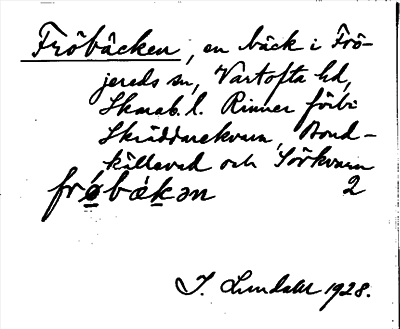 Fröbäcken, en bäck i Frö-
jereds sn, Vartofta hd,
Skarab. l. Rinner förbi
Skräddarekvarn, Bond-
källeved och Sörkvarn
frǿbäkən 2
J. Lundahl 1928.